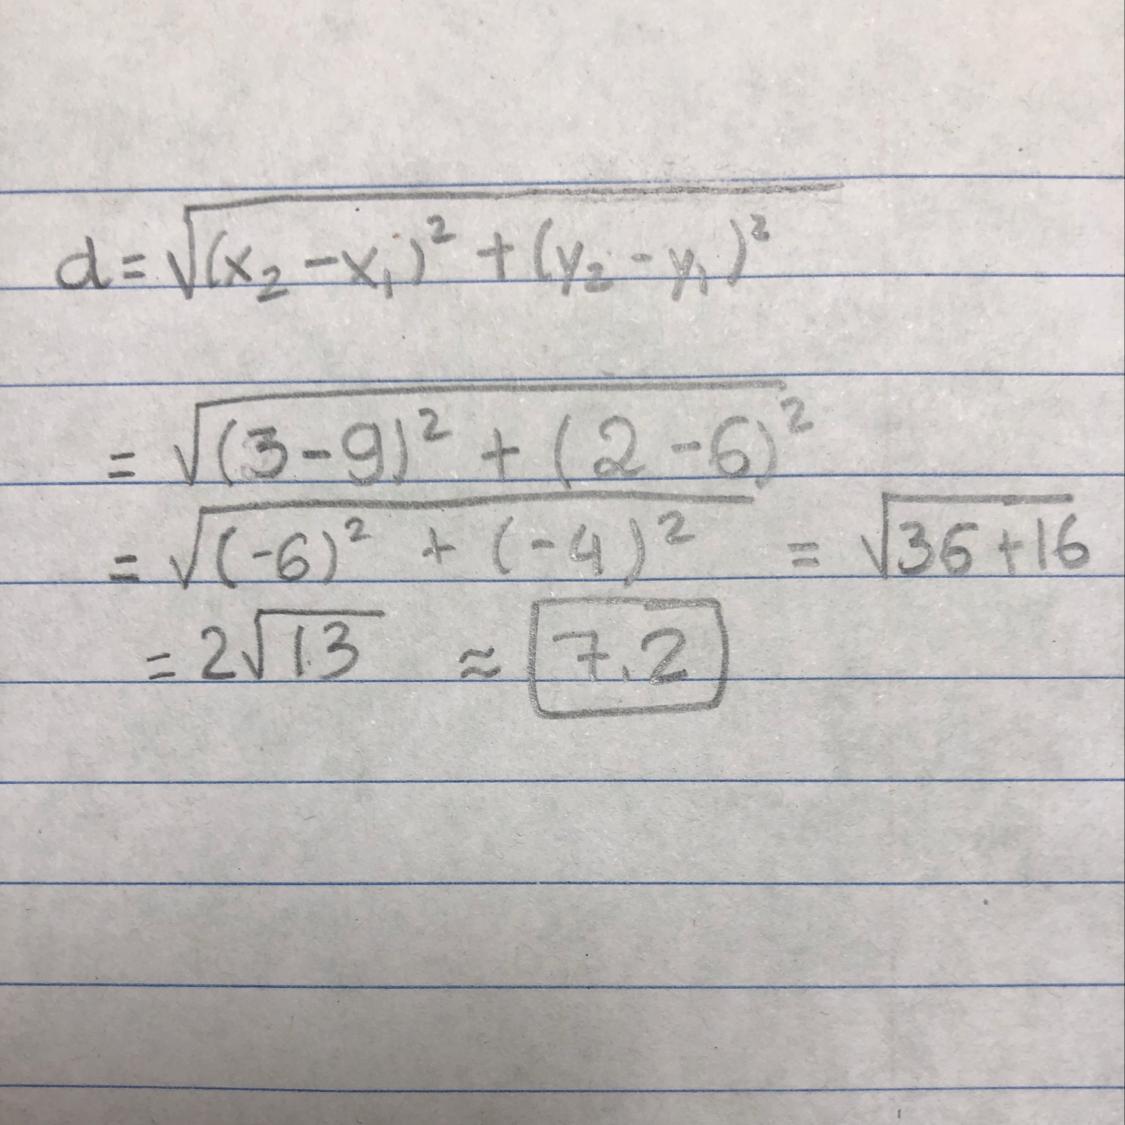 d = √(x₂ - x₁)² + (y₂ - y₁)²
= √(3 - 9)² + (2 - 6)²
= √(-6)² + (-4)² = √36 + 16
= 2√13 ≈ 7.2